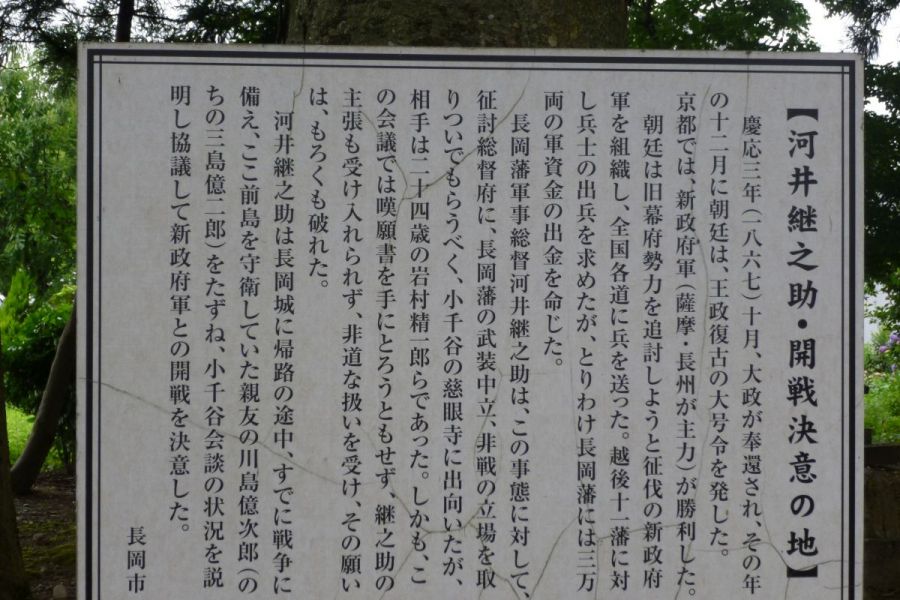 【河井継之助・開戦決意の地】
慶応三年(一八六七)十月、大政が奉還され、その年
の十二月に朝廷は、王政復古の大号令を発した。
京都では、新政府軍(薩摩・長州が主力)が勝利した。
朝廷は旧幕府勢力を追討しようと征伐の新政府
軍を組織し、全国各道に兵を送った。越後十一藩に対
し兵士の出兵を求めたが、とりわけ長岡藩には三万
両の軍資金の出金を命じた。
長岡藩軍事総督河井継之助は、この事態に対して、
征討総督府に、長岡藩の武装中立、非戦の立場を取
りついでもらうべく、小千谷の慈眼寺に出向いたが、
相手は二十四歳の岩村精一郎らであった。しかも、こ
の会議では嘆願書を手にとろうともせず、継之助の
主張も受け入れられず、非道な扱いを受け、その願い
は、もろくも破れた。
河井継之助は長岡城に帰路の途中、すでに戦争に
備え、ここ前島を守衛していた親友の川島億次郎(の
ちの三島億二郎)をたずね、小千谷会談の状況を説
明し協議して新政府軍との開戦を決意した。
長岡市